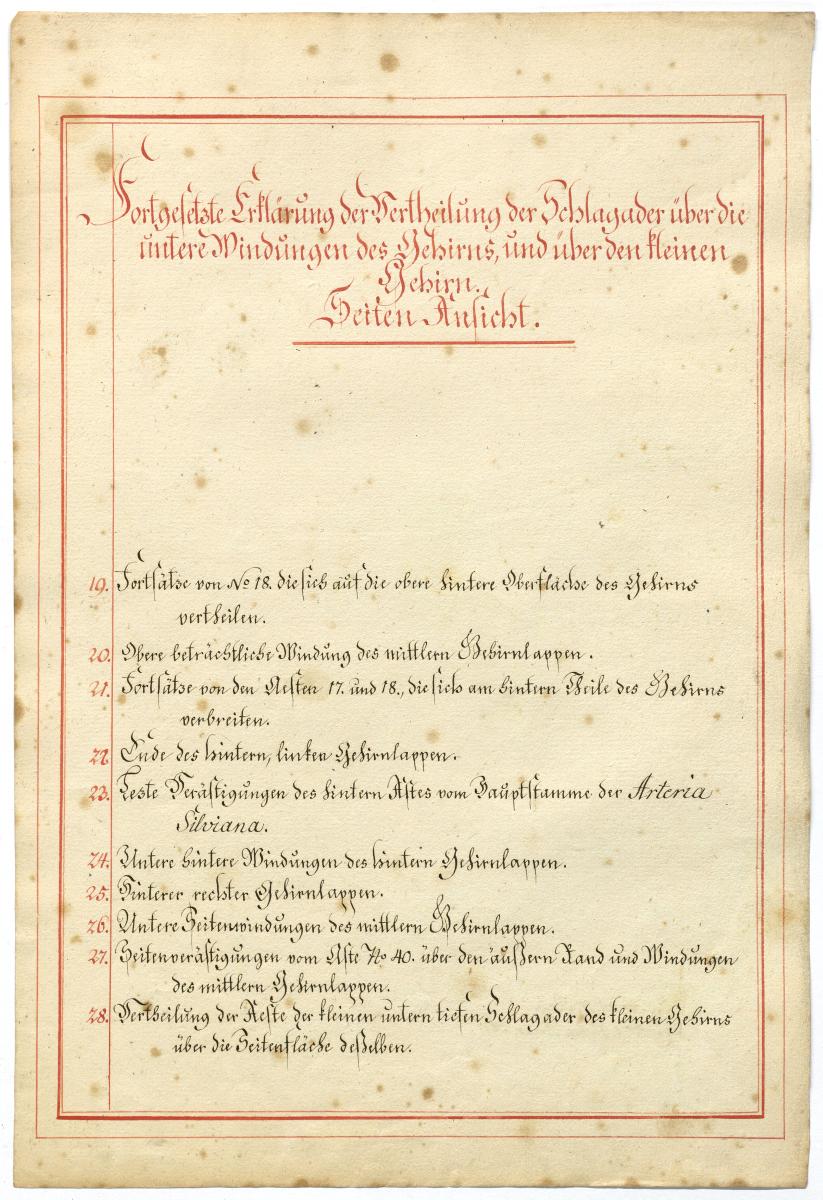 Fortgesetzte Erklärung der Vertheilung der Schlagader über die
untere Windungen des Gehirns, und über den kleinen
Gehirn.
Seiten Ansicht.
19. Fortsätze von No 18. die sich auf die obere hintere Oberfläche des Gehirns
vertheilen.
20. Obere beträchtliche Windung des mittlern Gehirnlappen.
21. Fortsätze von den Aesten 17. und 18., die sich am hintern Theile des Gehirns
verbreiten.
22. Ende des hintern, linken Gehirnlappen.
23. Leste Verästigungen des hintern Astes vom Hauptstamme der Arteria
Silviana.
24. Untere hintere Windungen des hintern Gehirnlappen.
25. Hinterer rechter Gehirnlappen.
26. Untere Seitenwindungen des mittlern Gehirnlappen.
27. Seitenverästigungen vom Aste No 40. über den äußern Rand und Windungen
des mittlern Gehirnlappen.
28. Vertheilung der Aeste der kleinen untern tiefen Schlagader des kleinen Gehirns
über die Seitenfläche deßelben.